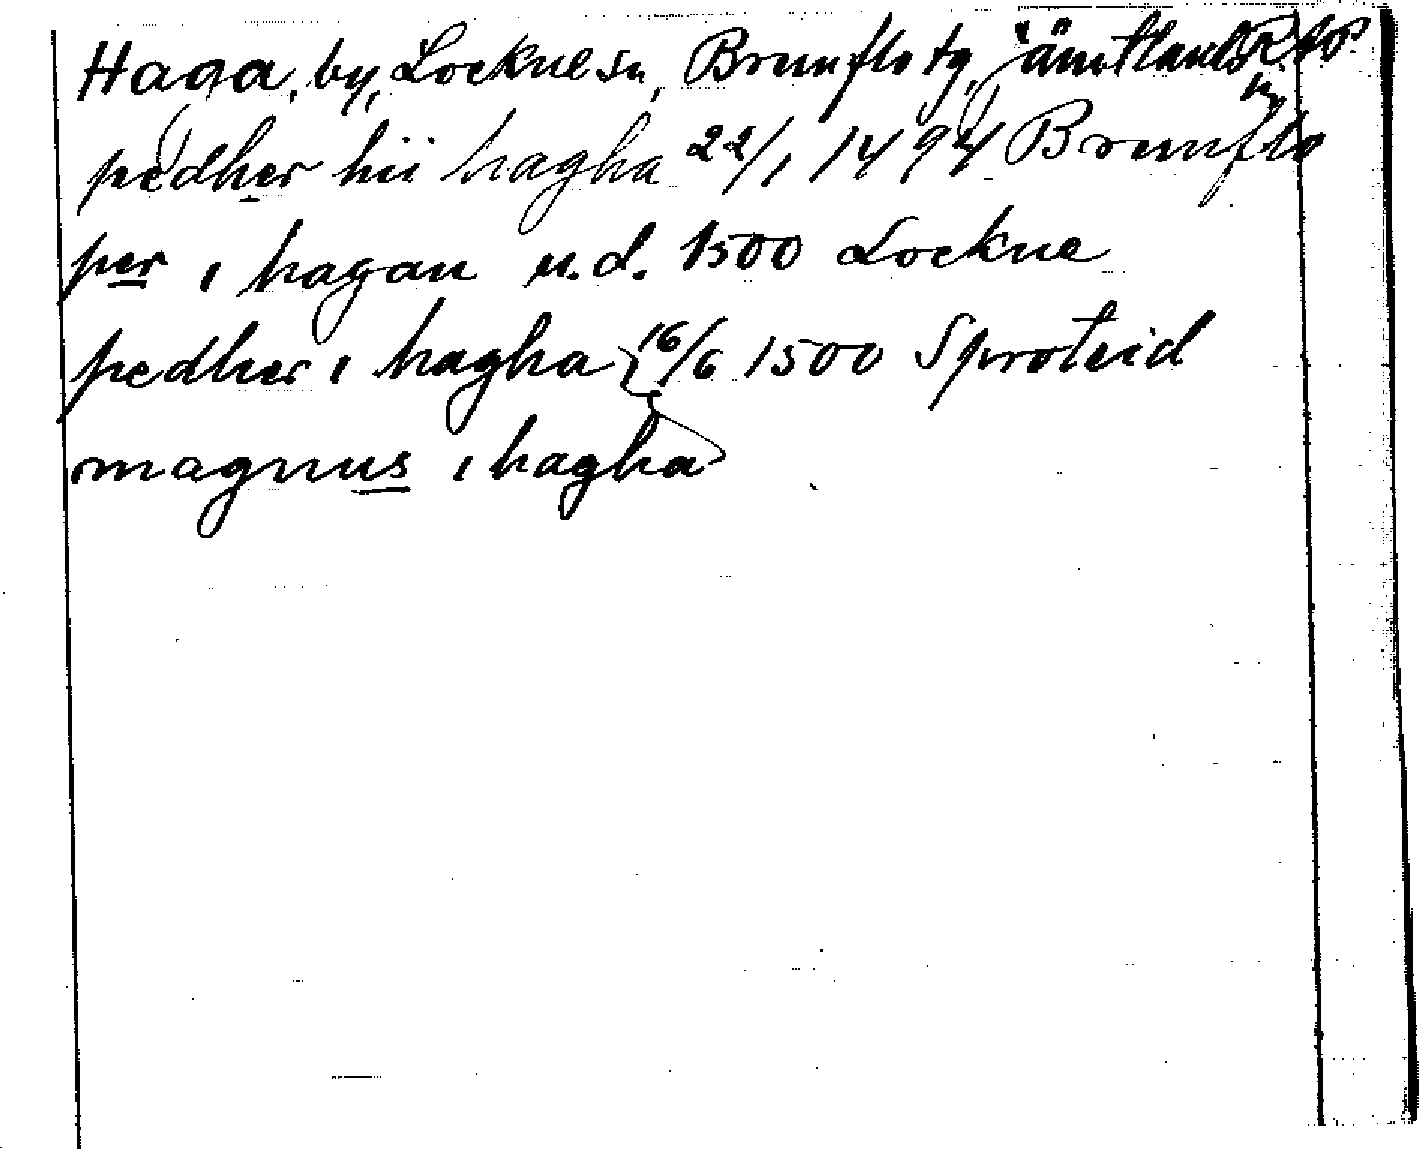 Haga, by, Lockne sn, Brunflo tg, Jämtlands
pedher hii hagha 22/1 1494 Brunflo
per i hagan u.d. 1500 Lockne
pedher i hagha } 16/6 1500 Sproteid
magnus i hagha